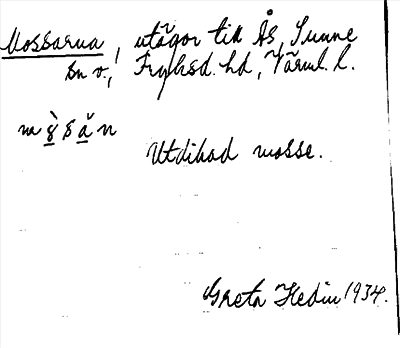 Mossarna, utägor till Ås, Sunne
sn o., Fryksd. hd, Värml. l.
Utdikad mosse.
Greta Hedin 1934.